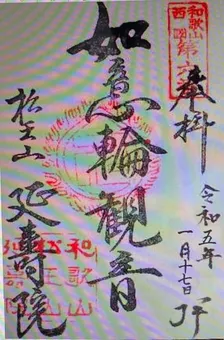 和歌山
西国第六
奉拝
令和五年
一月十七日
如意輪観音
松王山
延壽院
和歌山
松王山